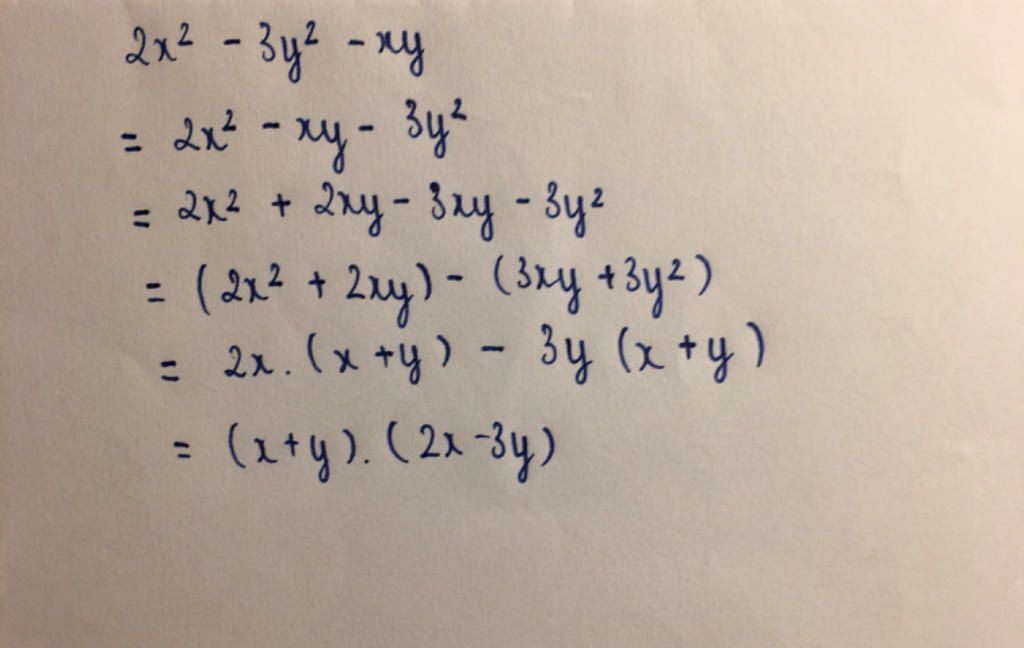 2x² - 3y² - xy
= 2x² - xy - 3y²
= 2x² + 2xy - 3xy - 3y²
= (2x² + 2xy) - (3xy + 3y²)
= 2x . (x + y) - 3y (x + y)
= (x + y) . (2x - 3y)